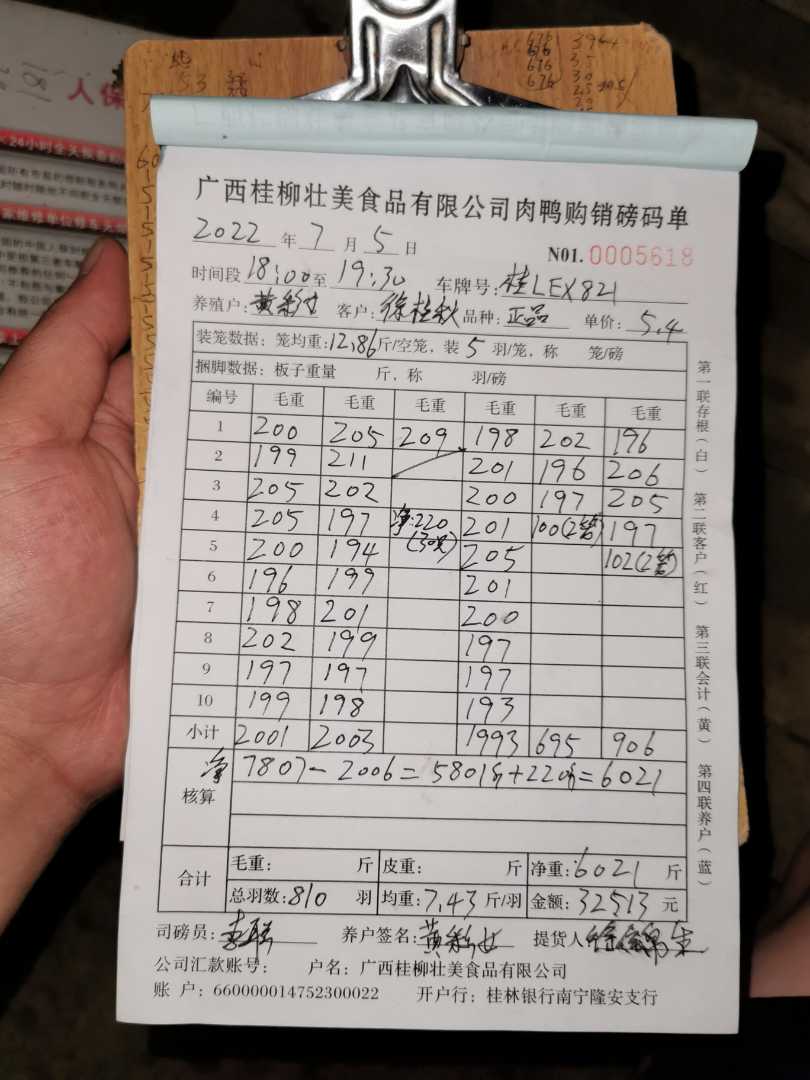 人保
广西桂柳壮美食品有限公司肉鸭购销磅码单
2022 年 7 月 5 日 N01. 0005618
时间段 18:00 至 19:30 车牌号: 桂LEX821
养殖户: 黄彩 客户: 徐桂秋 品种: 正品 单价: 5.4
装笼数据: 笼均重: 12.86 斤/空笼, 装 5 羽/笼, 称 笼/磅
捆脚数据: 板子重量 斤, 称 羽/磅
编号 毛重 毛重 毛重 毛重 毛重 毛重
1 200 205 209 198 202 196
2 199 211 201 196 206
3 205 202 200 197 205
4 205 197 净:220 201 100(2笼) 197
(30只)
5 200 194 205 102(2笼)
6 196 199 201
7 198 201 200
8 202 199 197
9 197 197 197
10 199 198 193
小计 2001 2003 1993 695 906
核算 净 7807-2006=5801斤+220斤=6021
合计 毛重: 斤 皮重: 斤 净重: 6021 斤
总羽数: 810 羽 均重: 7.43 斤/羽 金额: 32513 元
司磅员: 养户签名: 黄彩 提货人
公司汇款账号: 户名: 广西桂柳壮美食品有限公司
账 户: 660000014752300022 开户行: 桂林银行南宁隆安支行
第一联存根(白) 第二联客户(红) 第三联会计(黄) 第四联养户(蓝)